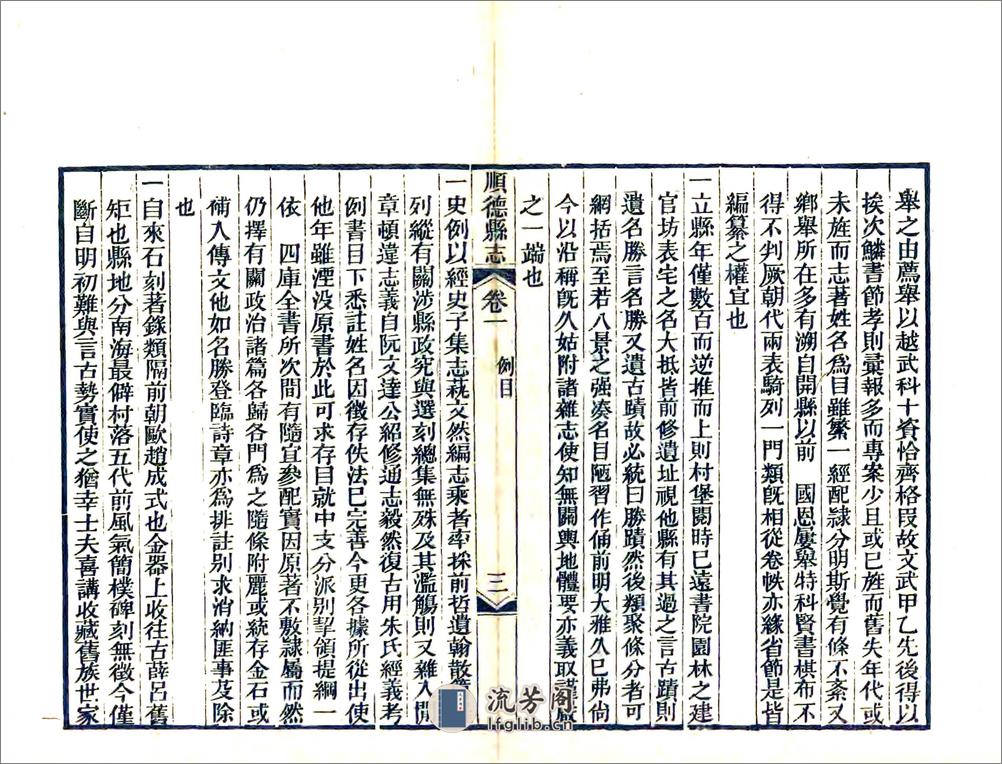 舉之由薦舉以越武科十資恰齊格叚故文武甲乙先後得以
挨次鱗書節孝則彚報多而專案少且或已旌而舊失年代或
未旌而志著姓名爲目雖繁一經配隸分明斯覺有條不紊又
鄉舉所在多有溯自開縣以前 國恩屢舉特科賢書棋布不
得不判厥朝代兩表騎列一門類旣相從卷帙亦緣省節是皆
編纂之權宜也
一立縣年僅數百而逆推而上則村堡閱時已遠書院園林之建
官坊表宅之名大抵皆前修遺址視他縣有其過之言古蹟則
遺名勝言名勝又遺古蹟故必統曰勝蹟然後類聚條分者可
網括焉至若八景之强凑名目陋習作俑前明大雅久已弗尙
今以沿稱旣久姑附諸雜志使知無關輿地體要亦義取謹嚴
之一端也
順德縣志
卷一
例目
三
一史例以經史子集志藝文然編志乘者率採前哲遺翰散
列縱有關涉縣政究與選刻總集無殊及其濫觴則又雜入
章頓違志義自阮文達公紹修通志毅然復古用朱氏經義考
例書目下悉註姓名因徵存佚法已完善今更各據所從出使
他年雖湮没原書於此可求存目就中支分派別挈領提綱一
依 四庫全書所次間有隨宜參配實因原著不敷隸屬而然
仍擇有關政治諸篇各歸各門爲之隨條附麗或統存金石或
補入傳文他如名勝登臨詩章亦爲排註別求消納匪事芟除
也
一自來石刻著錄類隔前朝歐趙成式也金器上收往古薛呂舊
矩也縣地分南海最僻村落五代前風氣簡樸碑刻無徵今僅
斷自明初難與言古勢實使之猶幸士夫喜講收藏舊族世家
流芳阁
lfglib.cn